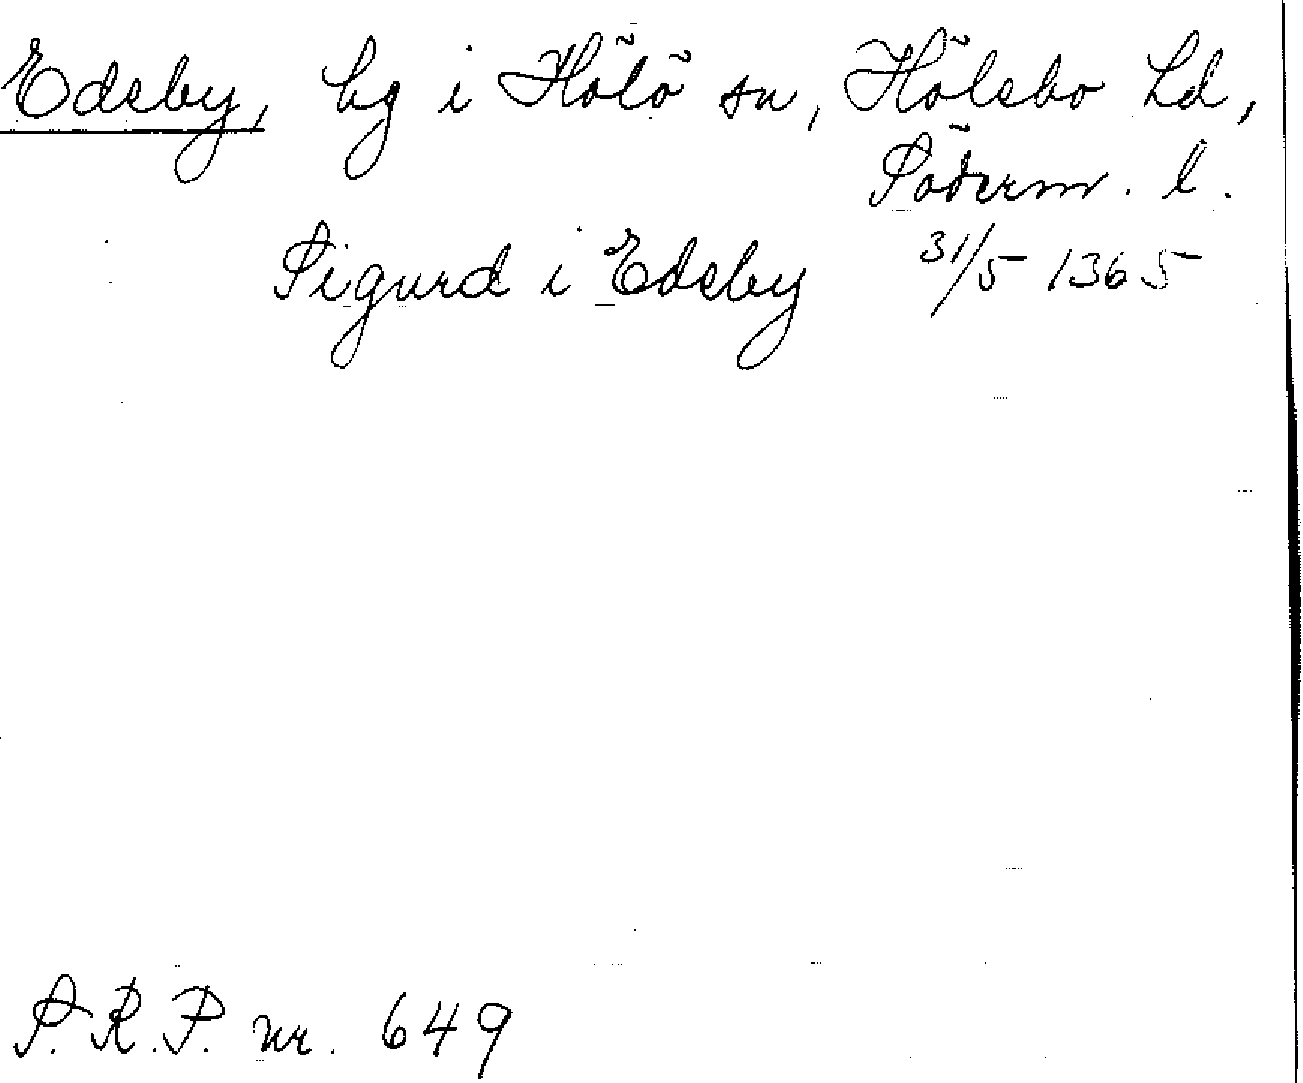 Edeby, hg i Hölö sn, Hölebo hd,
Söderm. l.
Sigurd i Edeby 31/5 1365
S.R.P. nr. 649